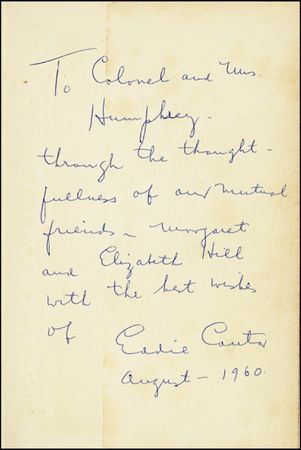 To Colonel and Mrs.
Humphrey.
through the thought-
fullness of our mutual
friends - Margaret
and Elizabeth Hill
with the best wishes
of Eddie Cantor
August - 1960.